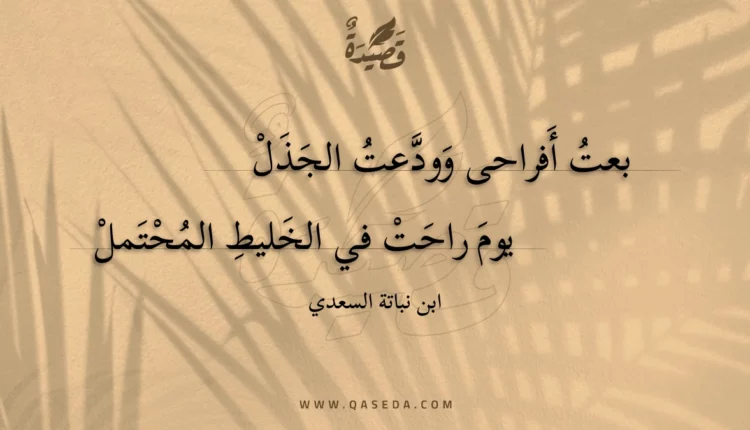 قَصِيدَةٌ
بعتُ أَفراحى وَودَّعتُ الجَذَلْ
يومَ راحَتْ في الخَليطِ المُحْتَملْ
ابن نباتة السعدي
WWW.QASEDA.COM